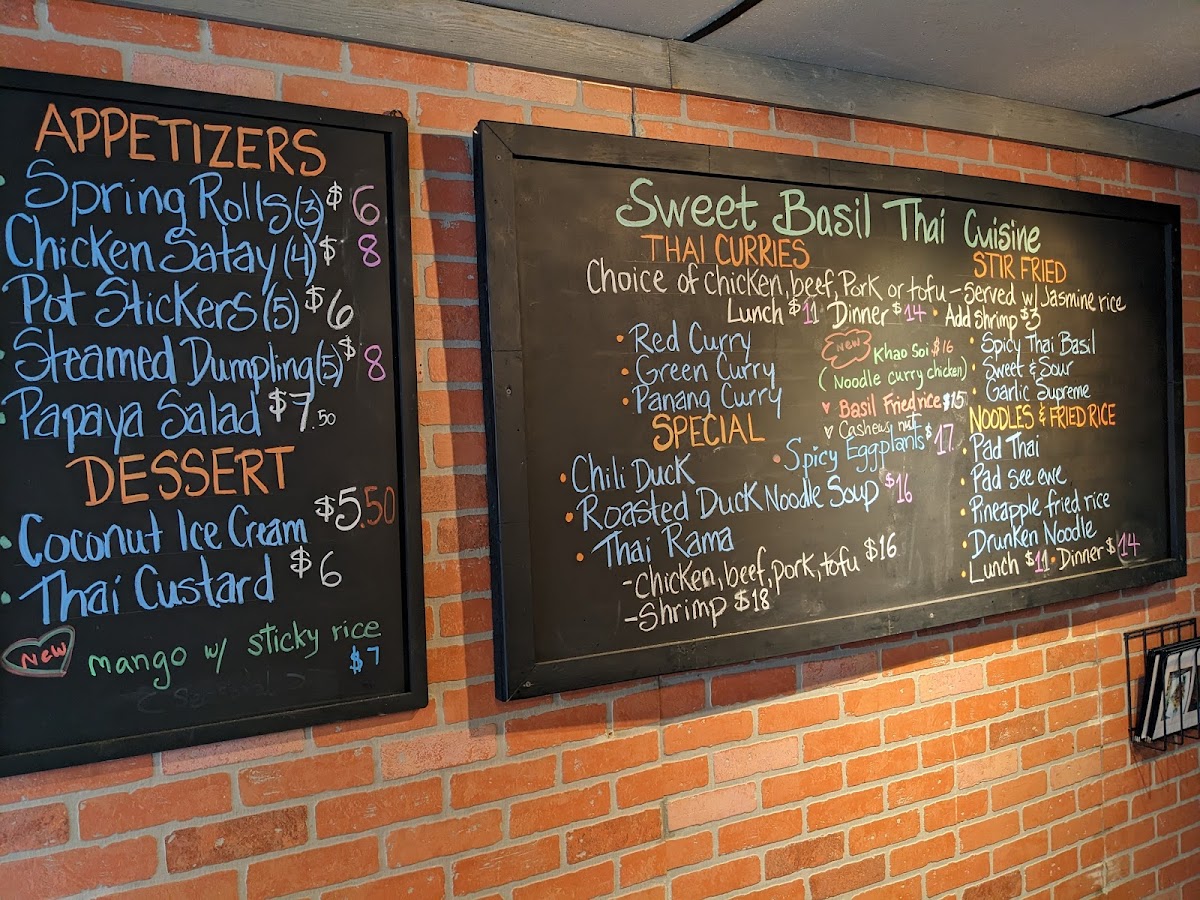 APPETIZERS
Spring Rolls (3) $6
Chicken Satay (4) $8
Pot Stickers (5) $6
Steamed Dumpling (5) $8
Papaya Salad $7.50
DESSERT
Coconut Ice Cream $5.50
Thai Custard $6
New mango w/ sticky rice $7
Sweet Basil Thai Cuisine
THAI CURRIES
STIR FRIED
Choice of chicken, beef, Pork or tofu - served w/ Jasmine rice
Lunch $11 Dinner $14 • Add Shrimp $3
• Red Curry
• Green Curry
• Panang Curry
New Khao Soi $16
(Noodle curry chicken)
Basil Fried rice $15
Cashews nut
• Spicy Thai Basil
• Sweet & Sour
• Garlic Supreme
SPECIAL
• Chili Duck
• Spicy Eggplants $17
• Roasted Duck Noodle Soup $16
• Thai Rama
- Chicken, beef, pork, tofu $16
- Shrimp $18
NOODLES & FRIED RICE
• Pad Thai
• Pad see ewe
• Pineapple fried rice
• Drunken Noodle
• Lunch $11 • Dinner $14